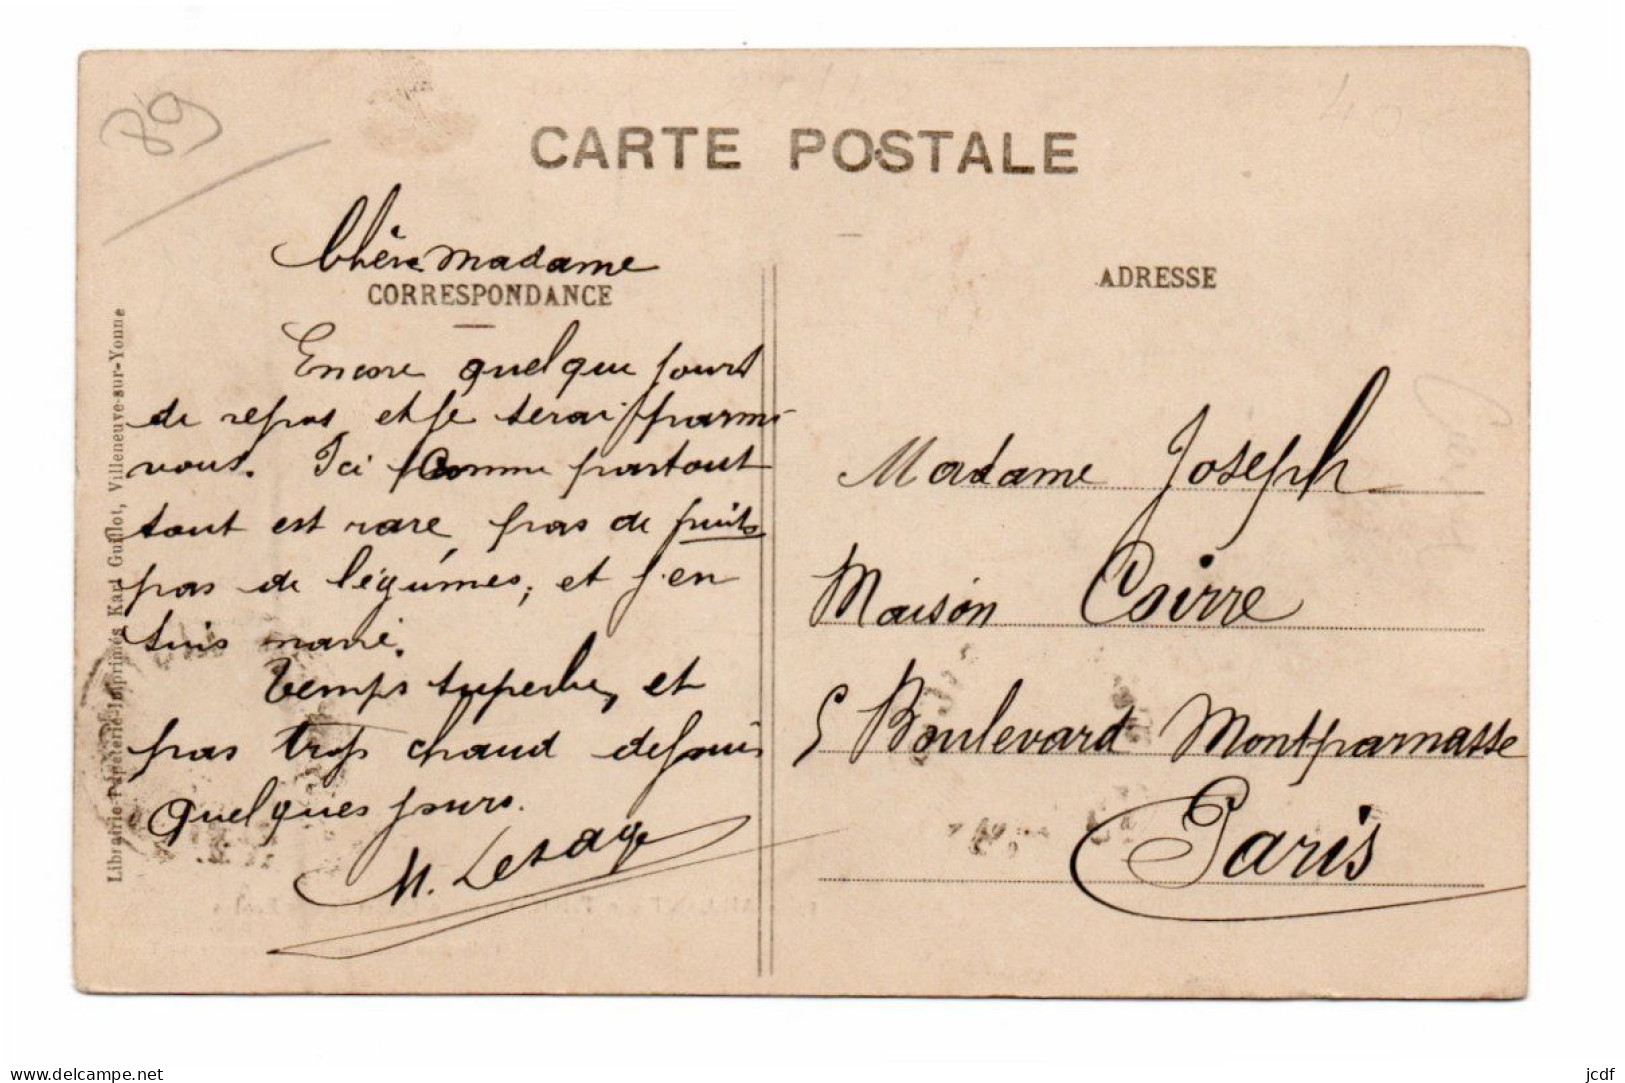 89
CARTE POSTALE
Chère Madame
CORRESPONDANCE
Encore quelque jours
de repos et je serai parmi
vous. Ici comme partout
tout est rare, pas de fruits
pas de légumes, et j'en
suis navré.
Temps superbe, et
pas trop chaud depuis
quelques jours.
M. Lesage
Librairie-Papeterie-Imprimés Karl Guillot, Villeneuve-sur-Yonne
ADRESSE
Madame Joseph
Maison Coirre
5 Boulevard Montparnasse
Paris
www.delcampe.net
jcdf